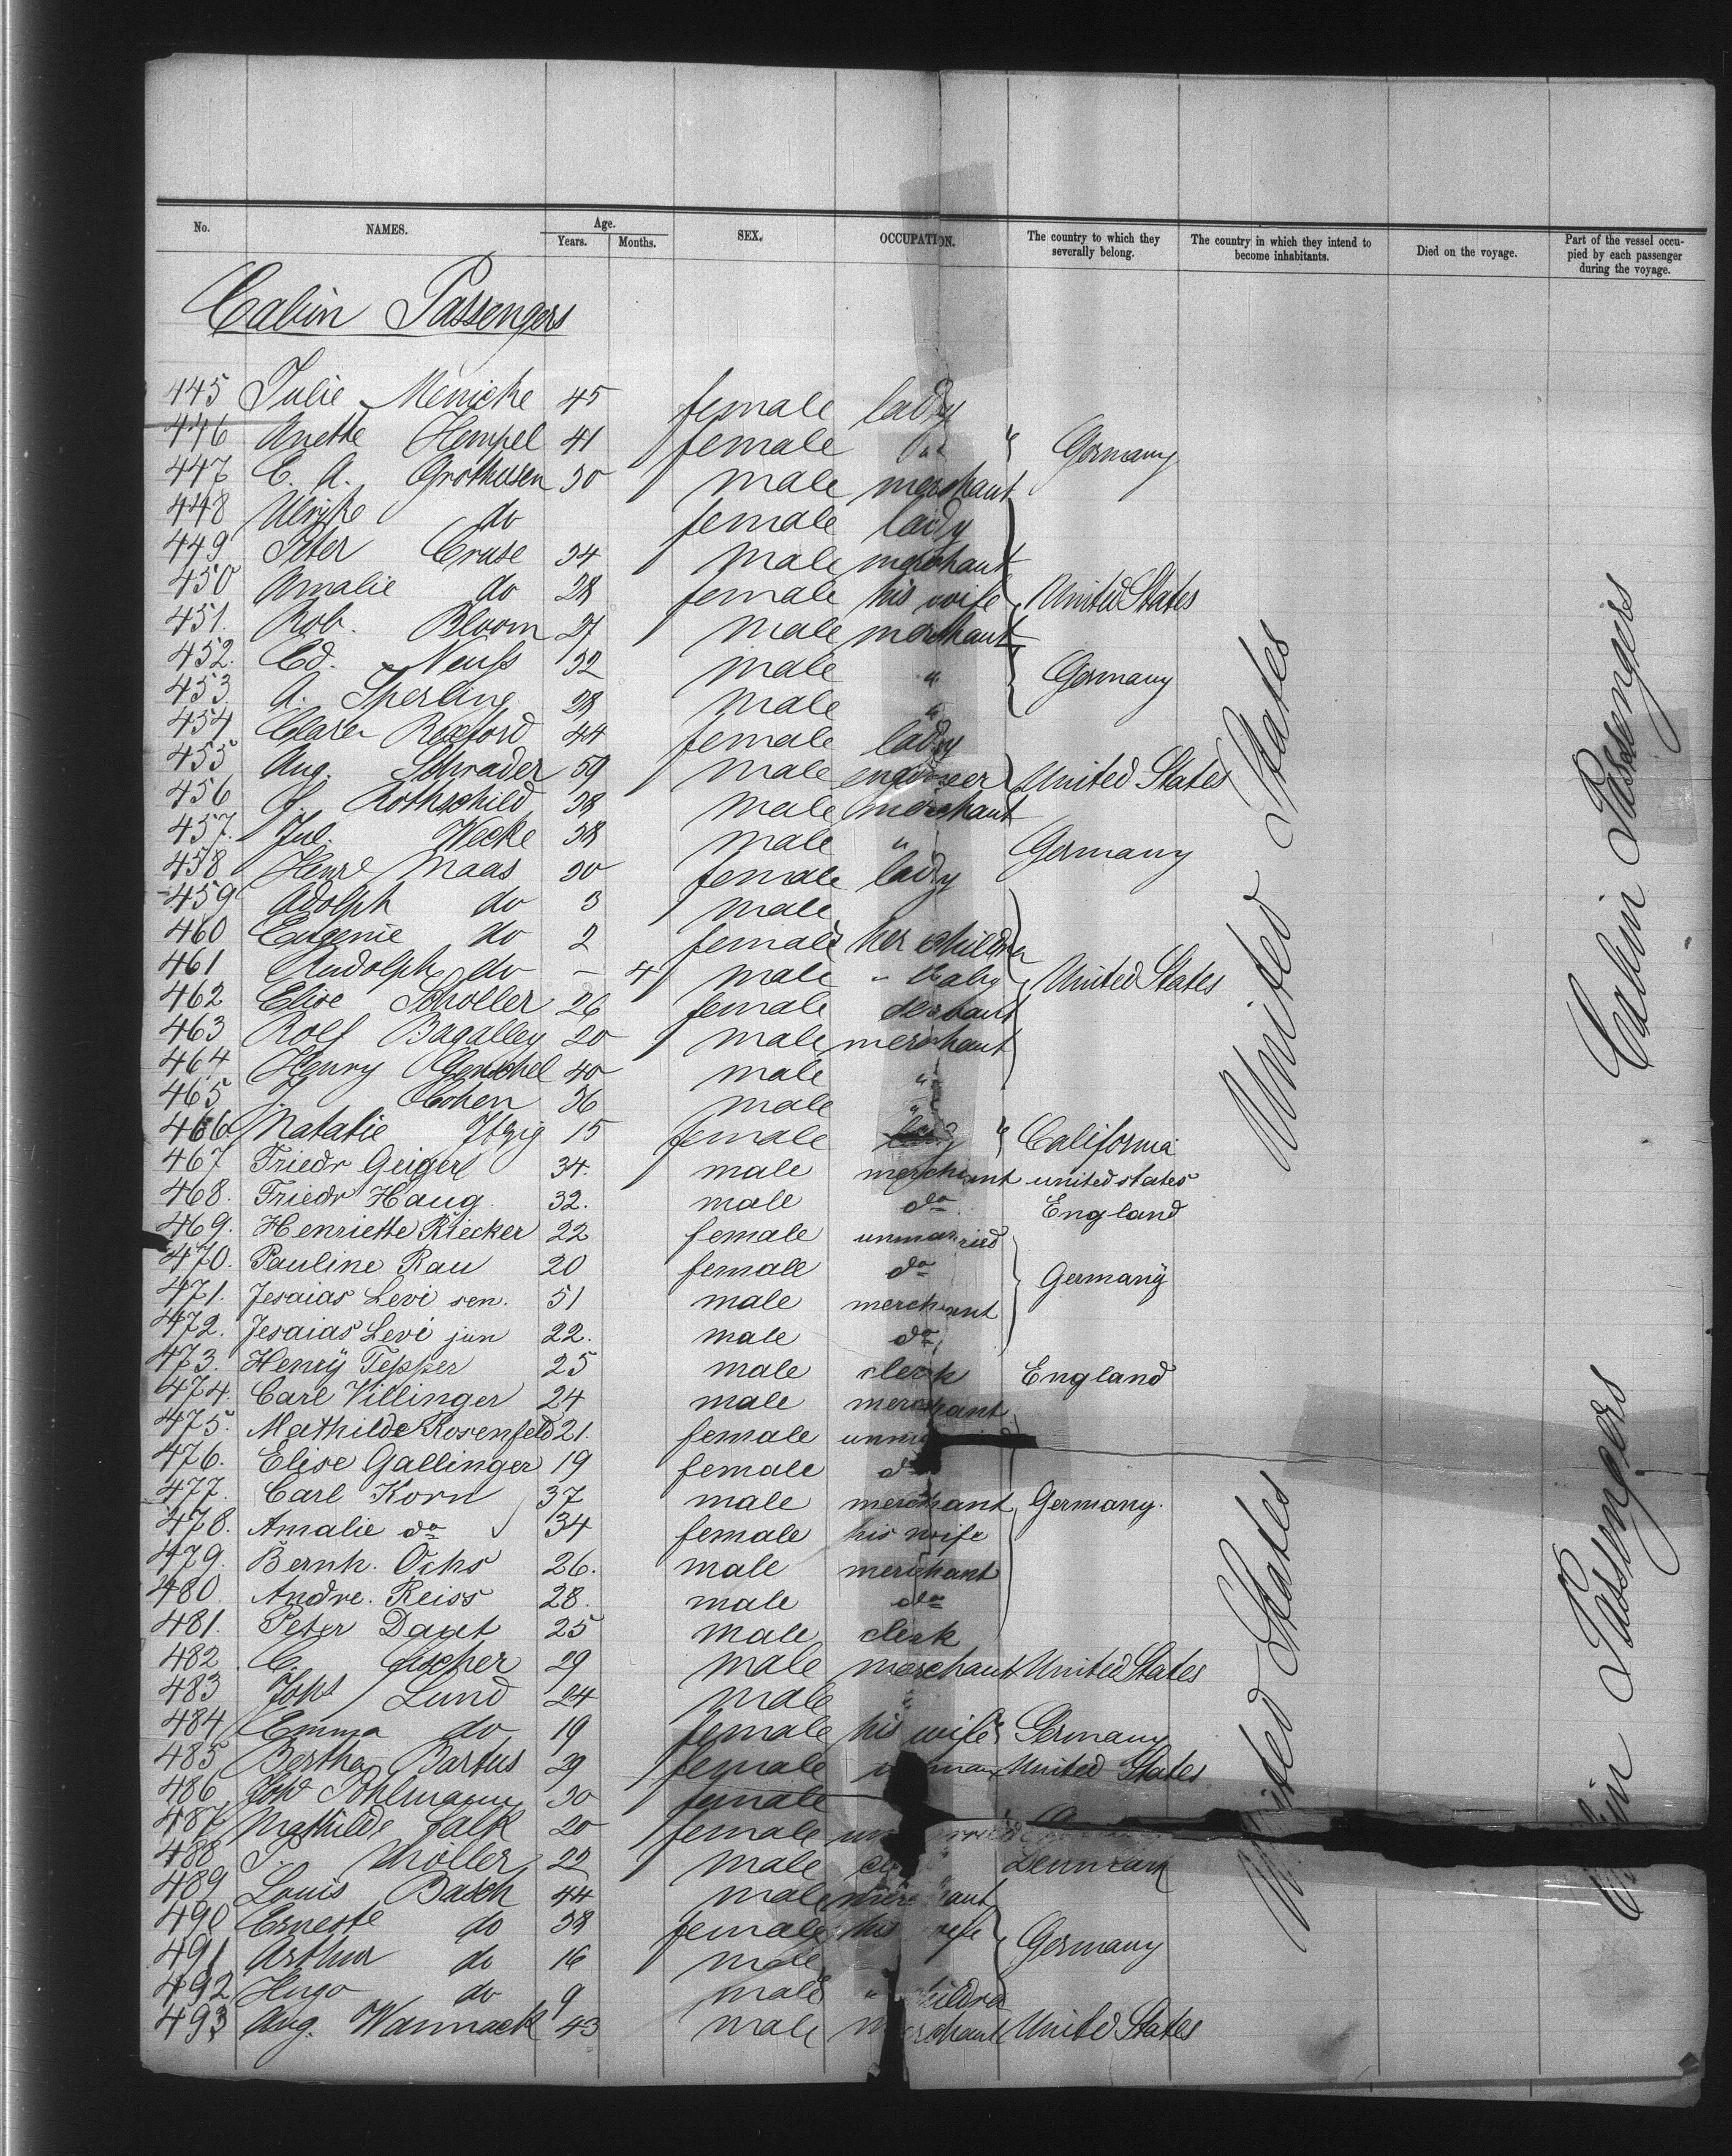 No. NAMES. Age. Years. Months. SEX. OCCUPATION. The country to which they severally belong. The country in which they intend to become inhabitants. Died on the voyage. Part of the vessel occupied by each passenger during the voyage.
Cabin Passengers
445 Julie Menicke 45 female lady
446 Anette Hempel 41 female " Germany
447 C. A. Grothusen 30 male merchant
448 Ulrike do female lady
449 Peter Cruse 34 male merchant
450 Amalie do 28 female his wife United States
451. Rob. Bloom 27 male merchant
452. Ed. Neuss 32 male " Germany
453. A. Sperling 28 male "
454 Clara Rexford 44 female lady
455 Aug. Schrader 59 male engineer United States
456 J. Rothschild 38 male merchant
457. Jul. Wecke 38 male " Germany
458 Henr. Maas 30 female lady
459 Adolph do 3 male
460 Eugenie do 2 female her children
461 Rudolph do – 4 male " baby United States
462 Elise Scholler 26 female servant
463 Rolf Bagalley 20 male merchant
464 Henry Genschel 40 male "
465 J. Cohen 36 male "
466 Natalie Itzig 15 female lady California
467 Friedr Geiger 34. male merchant united states
468. Friedr Haug. 32. male do England
469. Henriette Riecker 22 female unmarried
470. Pauline Rau 20 female do Germany
471. Jesaias Levi sen. 51 male merchant
472. Jesaias Levi jun 22. male do
473. Henry Tepper 25 male clerk England
474. Carl Villinger 24 male merchant
475. Mathilde Rosenfeld 21. female
476. Elise Gallinger 19 female do
477. Carl Korn 37 male merchant Germany.
478. Amalie do 34 female his wife
479. Bernh. Ochs 26. male merchant
480. Andre. Reiss 28. male do
481. Peter Daut 25 male clerk
482 C. Fischer 29 male merchant United States
483 Johs Lund 24 male "
484 Emma do 19 female his wife Germany
485 Bertha Bartus 29 female United States
486 Pohlmann 30 female
487 Mathilde Falk 20 female
488 P. Möller 22 male Denmark
489 Louis Basch 44 male merchant
490 Erneste do 38 female his wife Germany
491 Arthur do 16 male
492 Hugo do 9 male " children
493 Aug. Wannack 43 male merchant United States
United States
United States
Cabin Passengers
Cabin Passengers